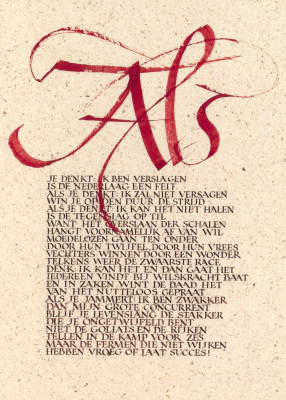 Als
JE DENKT: IK BEN VERSLAGEN
IS DE NEDERLAAG EEN FEIT.
ALS JE DENKT: IK ZAL NIET VERSAGEN
WIN JE OP DEN DUUR DE STRIJD
ALS JE DENKT: IK KAN HET NIET HALEN
IS DE TEGENSLAG OP TIL
WANT HET OVERSLAAN DER SCHALEN
HANGT VOORNAMELIJK AF VAN WIL
MOEDELOZEN GAAN TEN ONDER
DOOR HUN TWIJFEL, DOOR HUN VREES
VECHTERS WINNEN DOOR EEN WONDER
TELKENS WEER DE ZWAARSTE RACE.
DENK: IK KAN HET EN DAN GAAT HET
IEDEREEN VINDT BIJ WILSKRACHT BAAT
EN IN ZAKEN WINT DE DAAD HET
VAN HET NUTTELOOS GEPRAAT
ALS JE JAMMERT: IK BEN ZWAKKER
DAN MIJN GROTE CONCURRENT
BLIJF JE LEVENSLANG DE STAKKER
DIE JE ONGETWIJFELD BENT
NIET DE GOLIATS EN DE RIJKEN
TELLEN IN DE KAMP VOOR ZES
MAAR DE FERMEN DIE NIET WIJKEN
HEBBEN VROEG OF LAAT SUCCES!